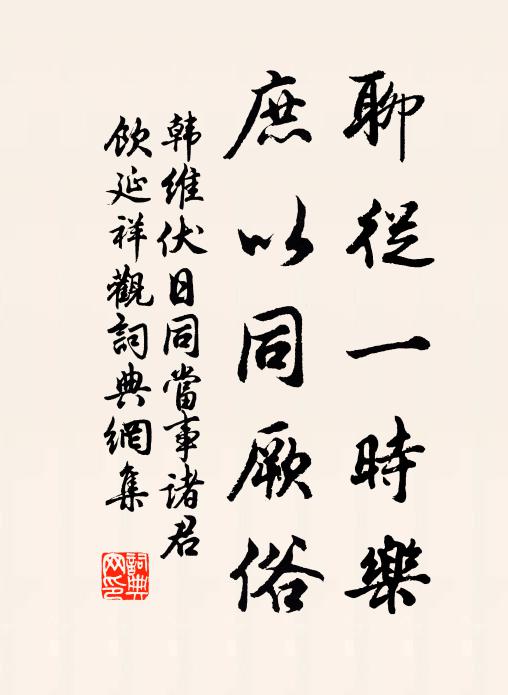 聊從一時樂
庶以同厥俗
韩維伏日同當事諸君
飲延祥觀詞典網集
詞典网印